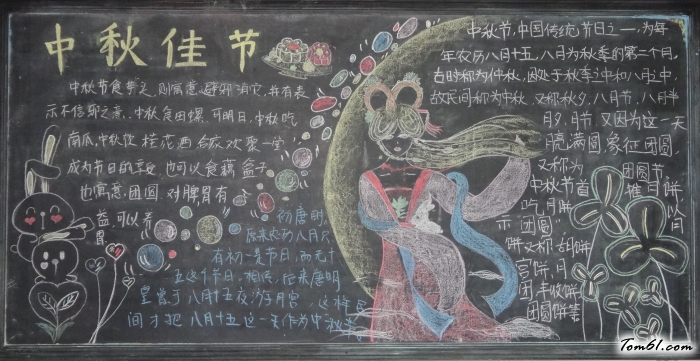 中秋佳节
中秋节食芋头,则寓意辟邪消灾,并有表
示不信邪之意.中秋食田螺,可明目,中秋吃
南瓜,中秋饮桂花酒合家欢聚一堂
成为节日的享受也可以食藕盒子
也寓意团圆 对脾胃有
益可以养
胃
初唐时,
原来农历八月只
有初一是节日,而无十
五这个节日,相传,后来唐明
皇曾于八月十五夜游月宫,这样民
间才把八月十五这一天作为中秋节
中秋节,中国传统节日之一,为每
年农历八月十五,八月为秋季的第二个月,
古时称为仲秋,因处于秋季之中和八月之中,
故民间称为中秋,又称秋夕,八月节,八月半
月夕,月节又因为这一天
月亮满圆,象征团圆
又称为团圆节.
中秋节首推月饼
吃,月饼以月
示团圆
饼又称胡饼
宫饼,月
团,丰收饼
团圆饼等
Tom61.com